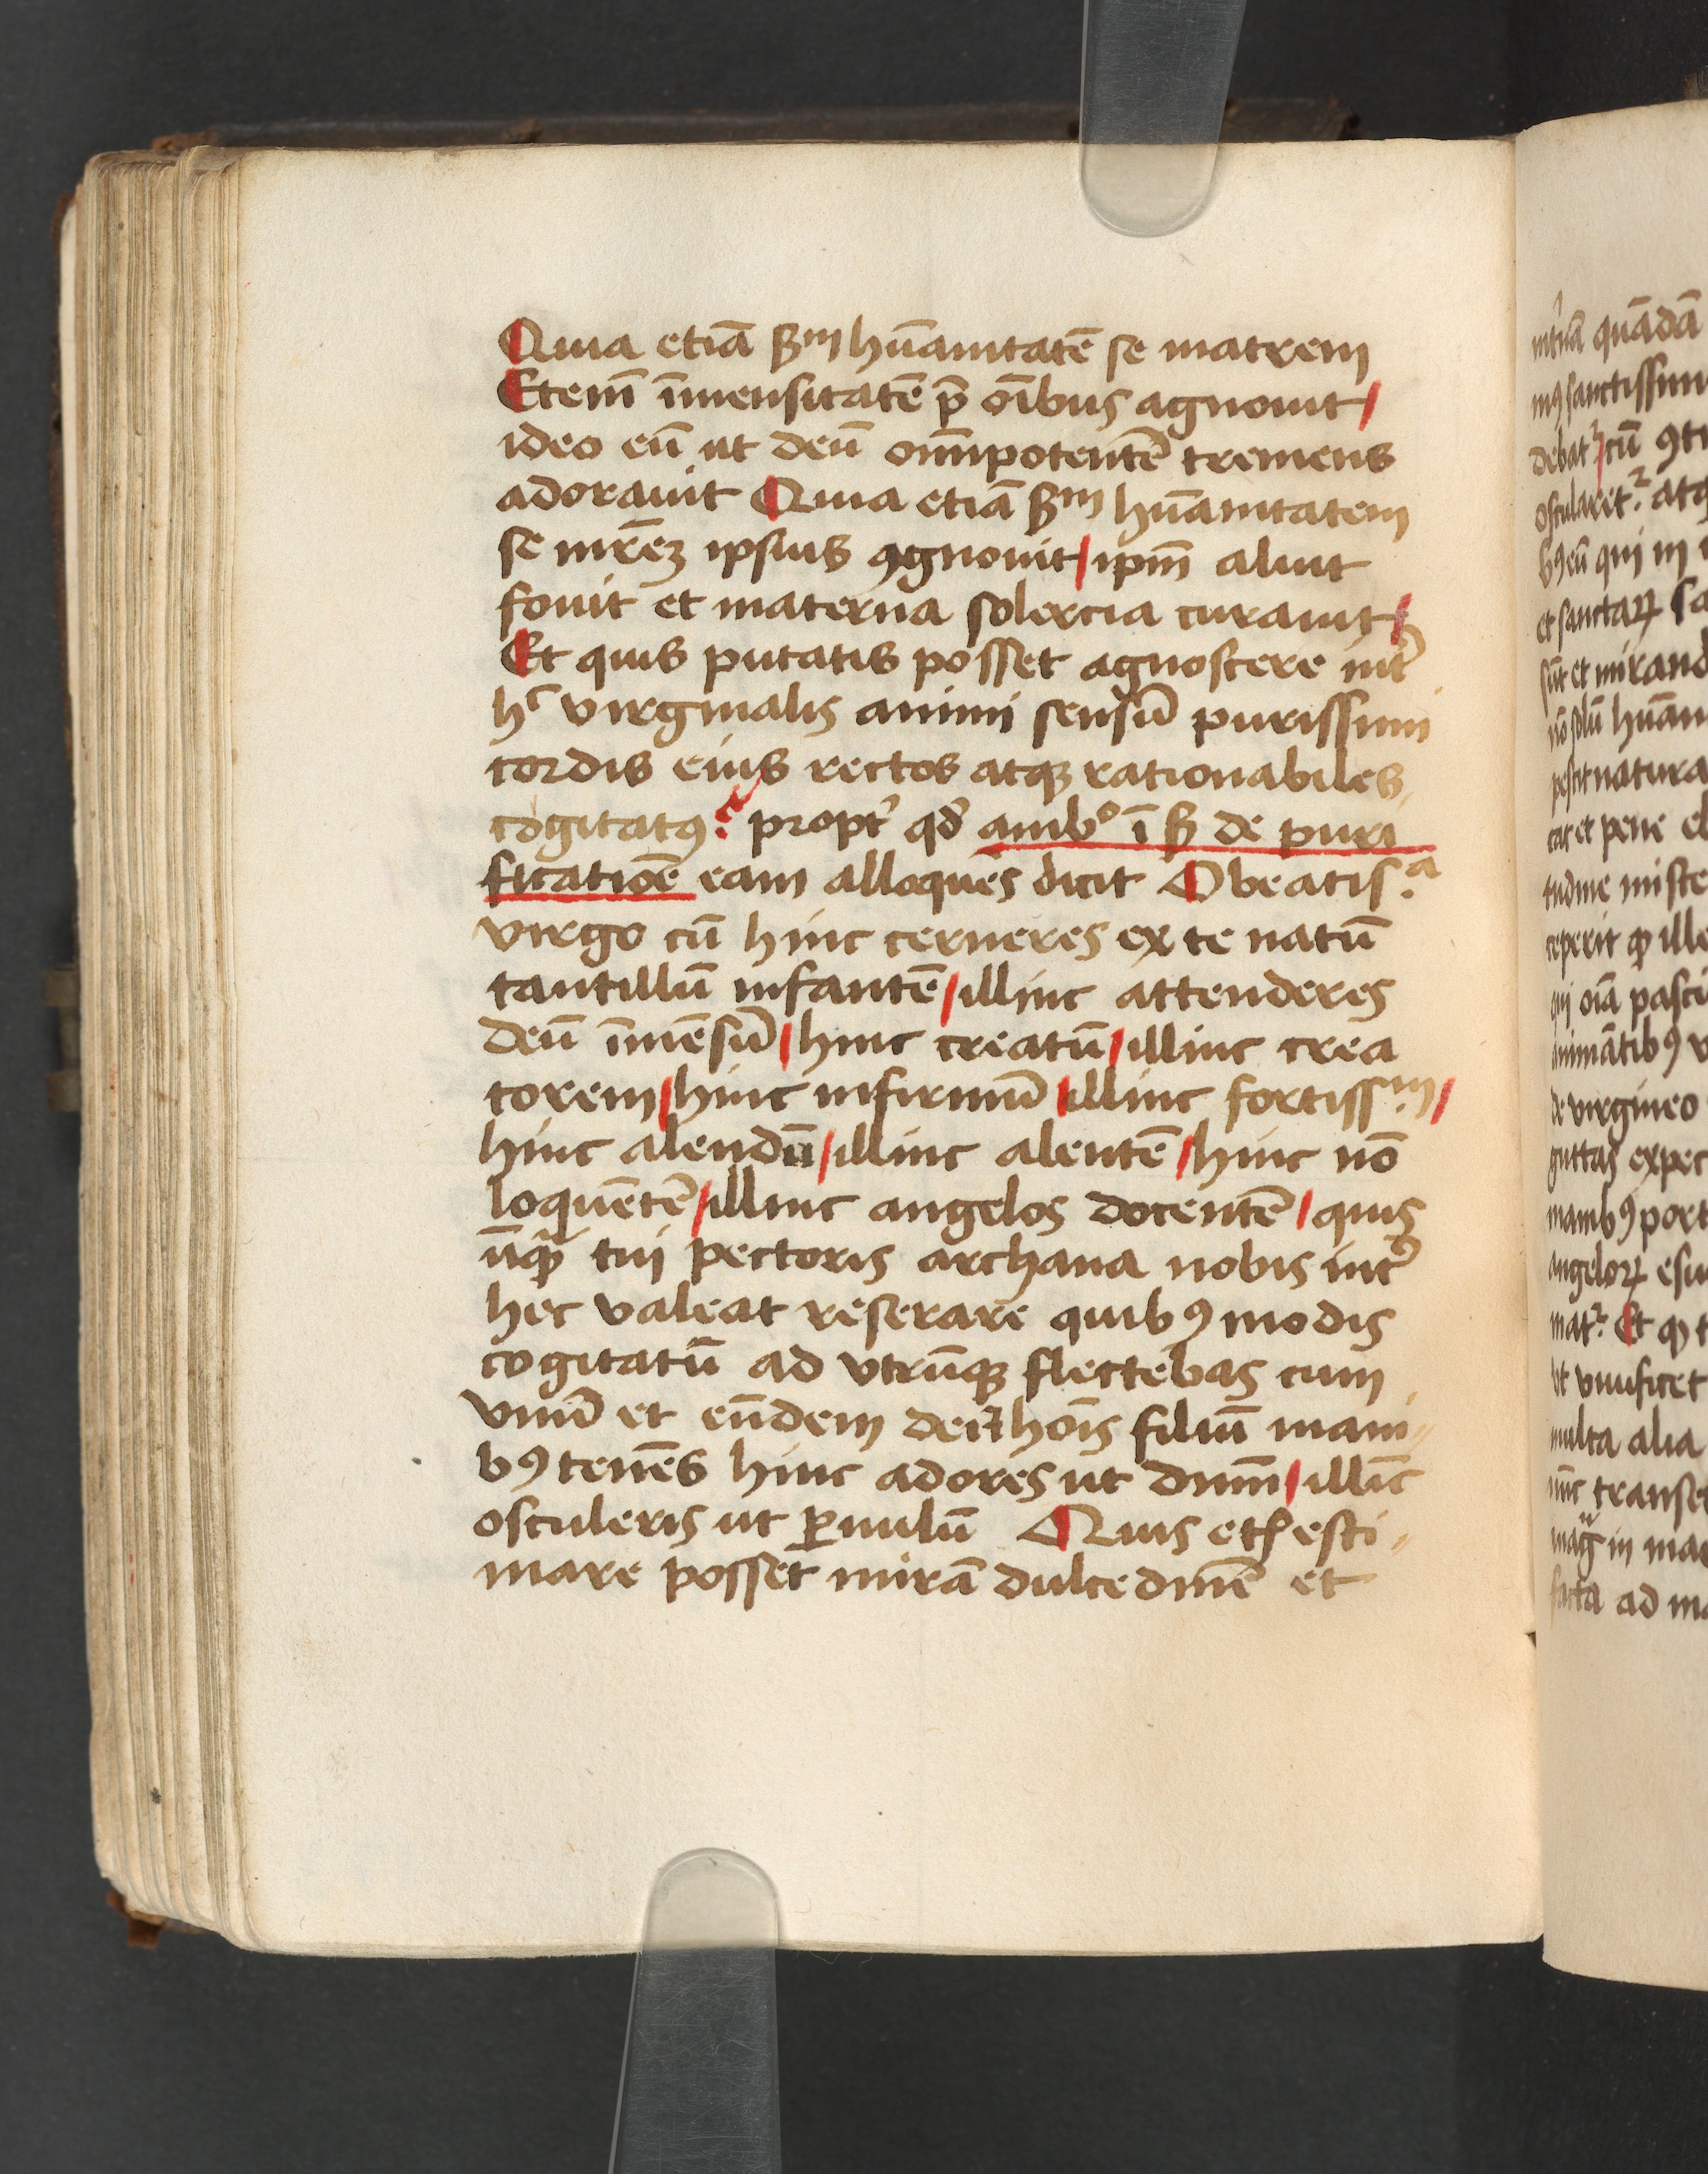 Quia etiā ẞm hūanitatē se matrem
Etem̄ īmensitatē p̄ oībus agnouit/
ideo eū ut deū om̄ipotentē tremens
adorauit Quia etiā ẞm hūanitatem
se mr̄eʒ ipsius ꝯgnouit/ipm̄ aluit
fouit et materna solercia curauit/
Et quis putatis posset agnoscere int̉
hͨ virginalis animi sensū purissimi
cordis eius rectos atqꝫ rationabiles
cogitatꝰ? propt̉ qd̉ ambº ī ẞ de puri
ficatiōe eam alloquēs dicit O beatis.ᵃ
virgo cū hinc cerneres ex te natū
tantillū infantē/illinc attenderes
deū īmēsū/hinc creatū/illinc crea
torem/hinc infirmū/illinc fortiss.ᵐ/
hinc alendū/illinc alentē/hinc nō
loquētē/illinc angelos docentē/quis
ūqꝫ̄ tui pectoris archana nobis int̉
hec valeat reserare quibꝰ modis
cogitatū ad vtrūqꝫ flectebas cum
vnū et eūdem dei ⁊ hoīs filiū mani-
bꝰ tenēs hinc adores ut dnm̄/illīc
osculeris ut ꝑuulū Quis etꝭ esti-
mare posset mirā dulcedinē et
mꝰ sanctissim
debat᷑/cū ꝯti
bꝰ eū qui in
et sanctaꝝ sa
sūt et mirand
nō solū hūan
pescit natura
tat et pene el
tudine miste
ceperit ꝙ ille
qui oīa pasci
animātibꝰ v
de virgineo
guttas expec
manibꝰ port
angeloꝝ esu
mat᷑. Et ꝙ t
vt viuificet
multa alia
nūc transe
mag̃ in ma
facta ad ma